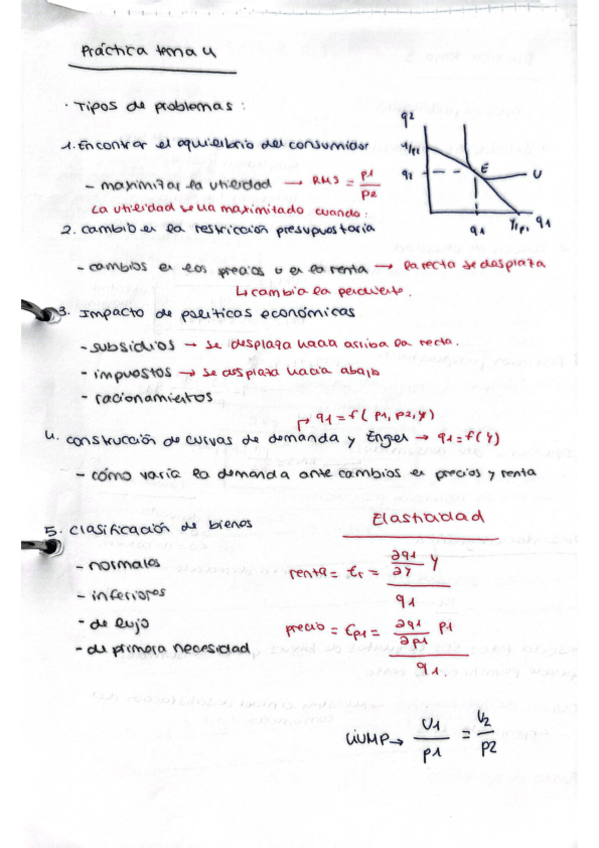 Práctica tema 4
· Tipos de problemas :
1. Encontrar el equilibrio del consumidor
- maximizar la utilidad → RMS = p1/p2
La utilidad se ua maximizado cuando:
q2
Y/p2
q2
E
U
q1
Y/p1
q1
2. cambio en la restricción presupuestaria
- cambios en los precios o en la renta → la recta se desplaza
↳ cambia la pendiente.
3. Impacto de políticas económicas
- subsidios → se desplaza hacia arriba la recta.
- impuestos → se desplaza hacia abajo
- racionamientos
↱ q1 = f( p1, p2, y)
4. construcción de curvas de demanda y Engel → q1 = f(y)
- cómo varía la demanda ante cambios en precios y renta
5. clasificación de bienes
Elasticidad
- normales
- inferiores
- de lujo
- de primera necesidad
renta = Er = ∂q1/∂Y Y / q1
precio = Ep1 = ∂q1/∂p1 p1 / q1.
LIUMP → U1/p1 = U2/p2